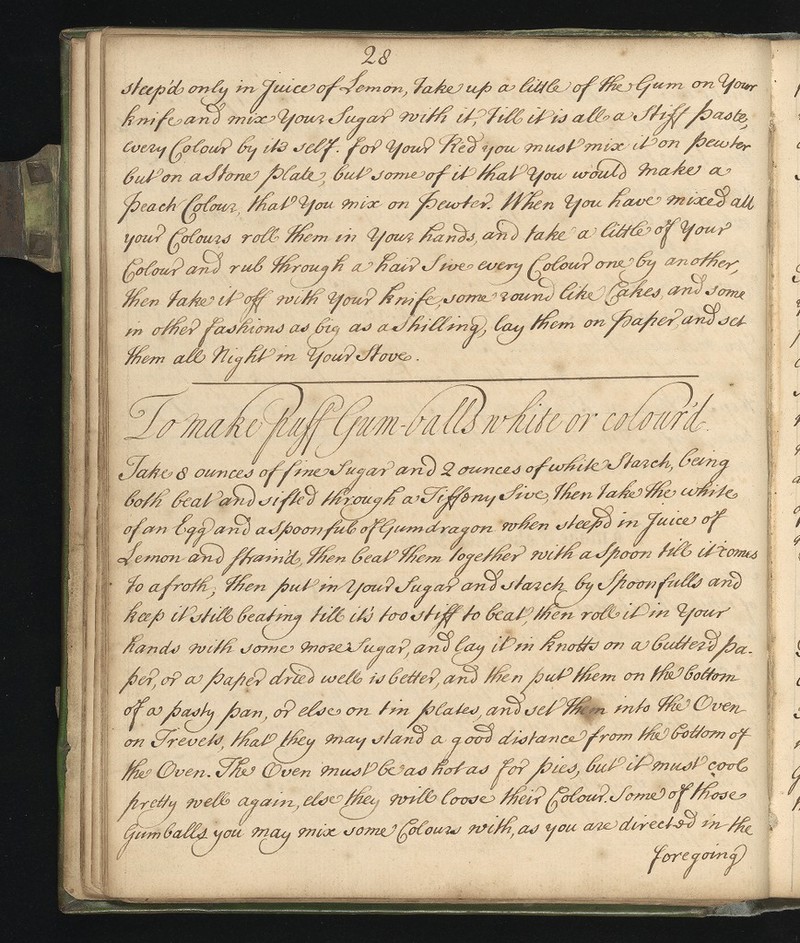 28
steep'd only in Juice of Lemon, take up a little of the Gum on Your
knife and mix Your Sugar with it, till it is all a Stiff paste,
every Colour by its self. for Your Red you must mix it on pewter
but on a Stone plate, but some of it that You would make a
peach Colour, that You mix on pewter. When You have mixed all
your Colours roll them in Your hands, and take a little of Your
Colour and rub through a hair Sive every Colour one by another,
then take it off with Your knife, some round like Cakes, and some
in other fashions as big as a shilling, lay them on paper, and set
them all Night in Your Stove.
To make puff Gum-balls white or colour'd.
Take 8 ounces of fine Sugar and 2 ounces of white Starch, being
both beat and sifted through a Tiffeny Sive, then take the white
of an Egg and a Spoonful of Gumdragon when steep'd in Juice of
Lemon and strain'd, then beat them together with a Spoon till it comes
to a froth, then put in Your Sugar and starch by Spoonfulls and
keep it still beating till it's too stiff to beat, then roll it in Your
hands with some more Sugar, and lay it in knotts on a butterd pa-
per, or a paper dried well is better, and then put them on the bottom
of a pasty pan, or else on tin plates, and set them into the Oven
on Trevets, that they may stand a good distance from the bottom of
the Oven. The Oven must be as hot as for pies, but it must cool
pretty well again, else they will loose their Colour. Some of those
Gumballs you may mix some Colours with, as you are directed in the
foregoing